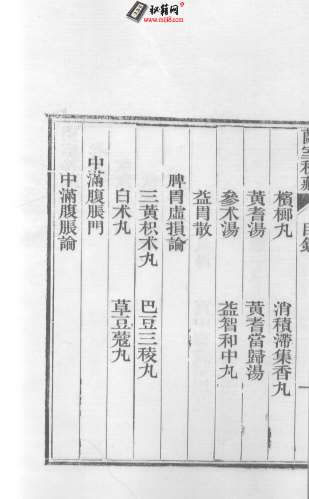 秘籍网
www.mi8.com
蘭室秘藏 目錄
檳榔丸 消積滯集香丸
黃耆湯 黃耆當歸湯
參术湯 益智和中丸
益胃散
脾胃虛損論
三黃枳术丸 巴豆三稜丸
白术丸 草豆蔻丸
中滿腹脹門
中滿腹脹論